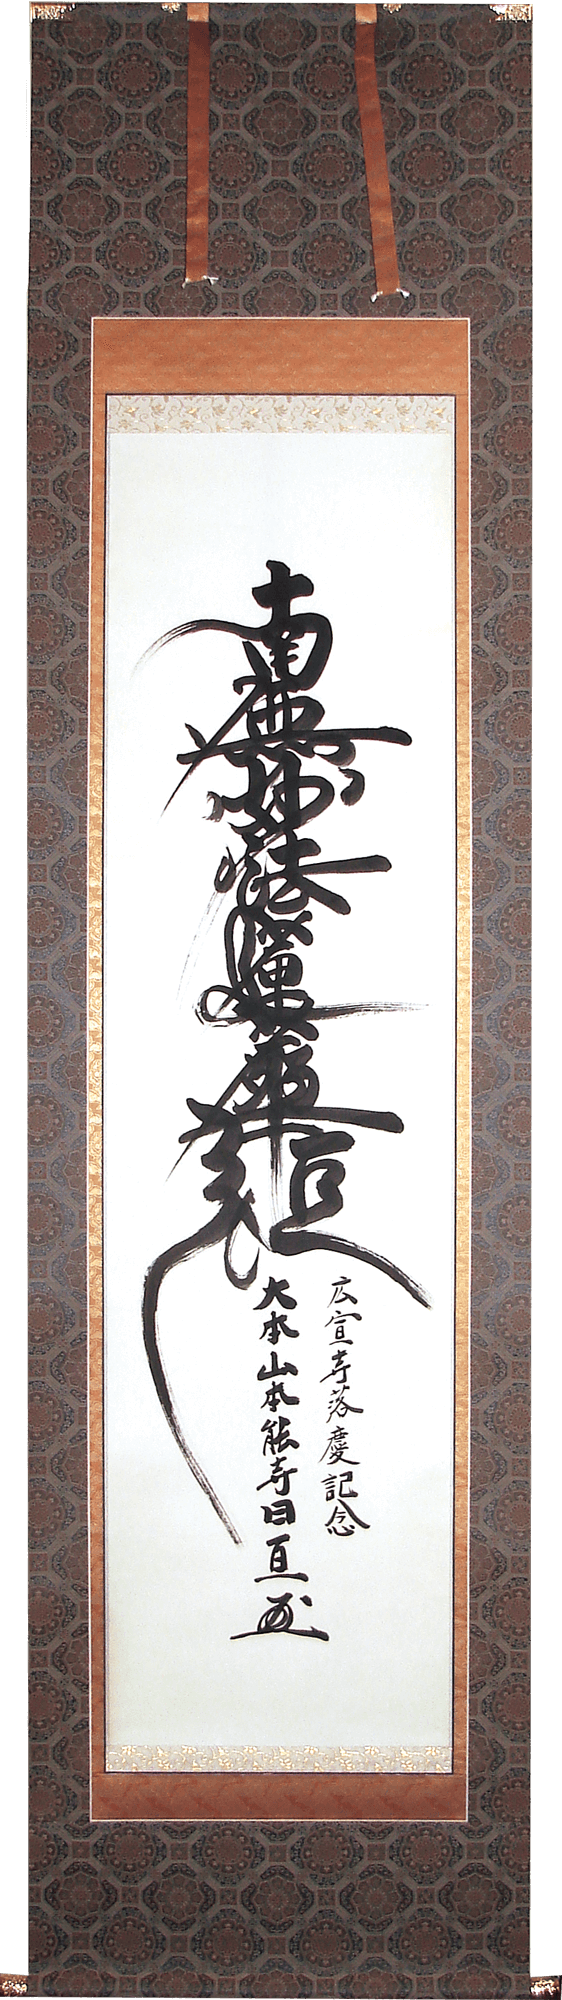 南無妙法蓮華経
広宣寺落慶記念
大本山本能寺日亘